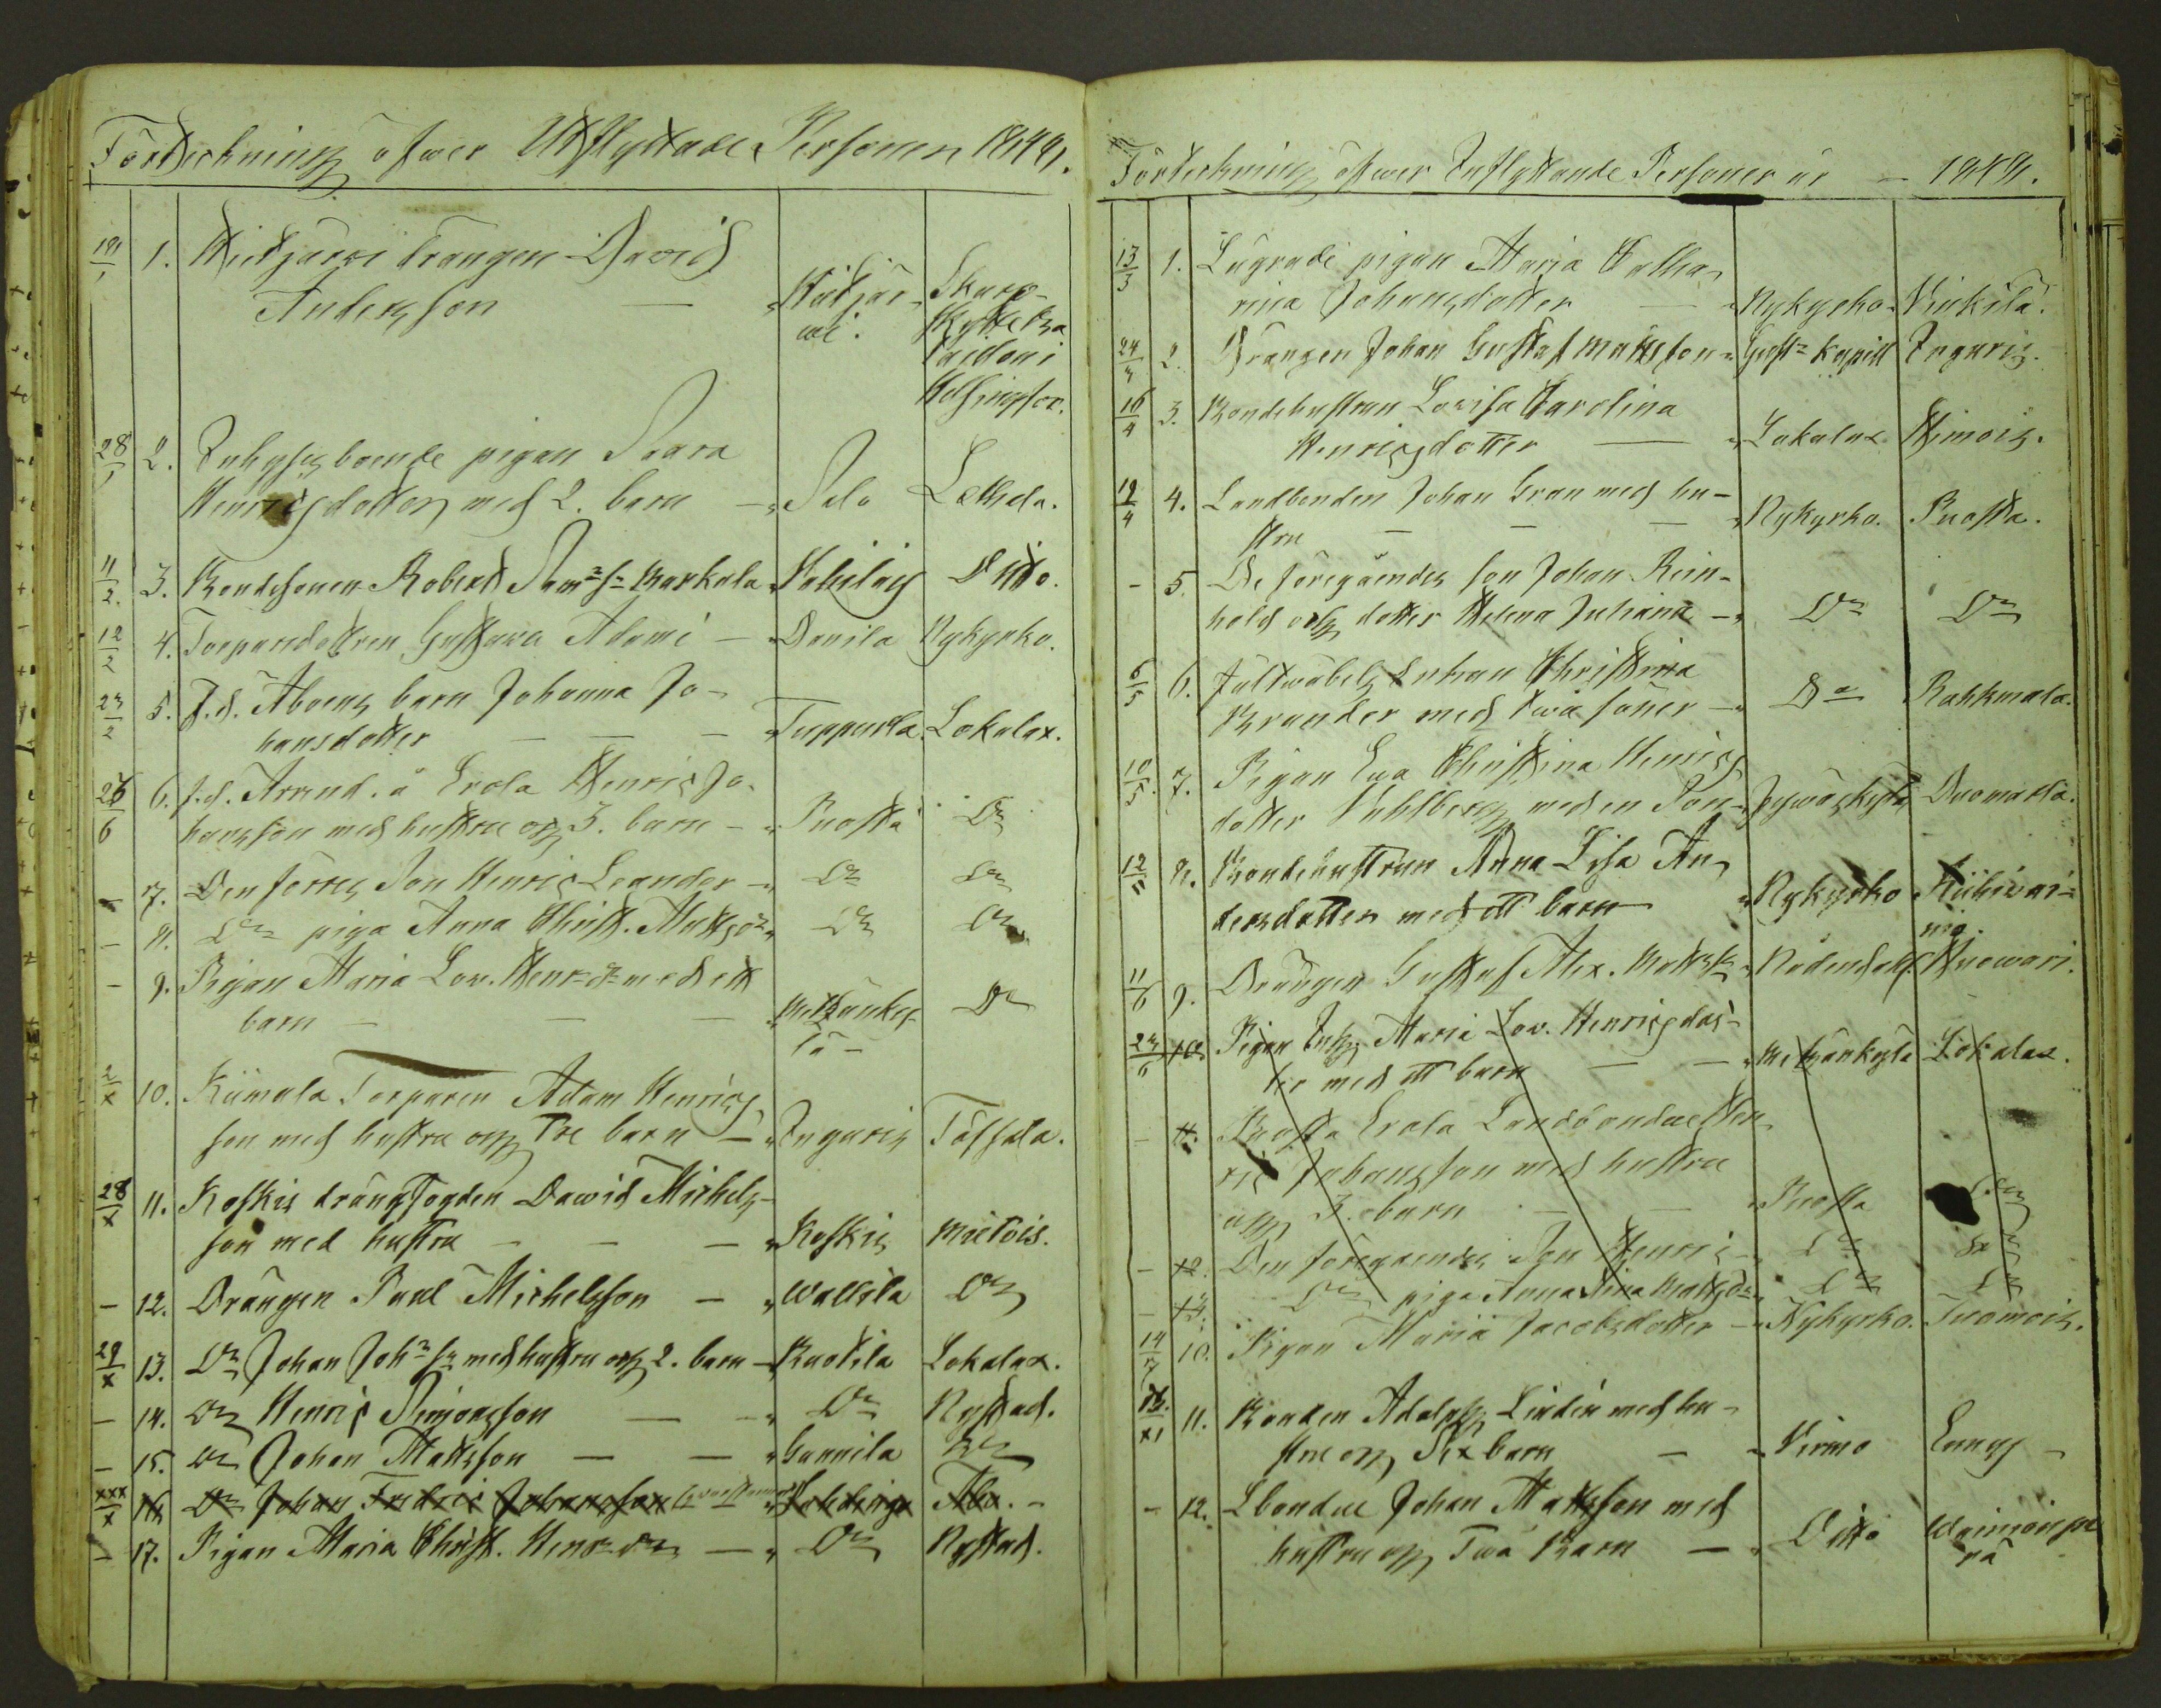 Förteckning öfwer Utflyttade Personer 1844.
19/1 1. Hietjärwi drängen David
Andersson — Hietjär- Skarp-
we. skytte Ba
taillon i
Helsingfor.
28/1 2. Inhyses boende pigan Saara
Henricsdotter med 2. barn — Salo Lethala.
11/2. 3. Bondesonen Robert Sam: s: Markula Ditto.
12/2 4. Torparedottren Gustava Adami — Danila Nykyrko.
23/2 5. F.d. Åboens barn Johanna Jo-
hansdotter — — — Tuppurla. Lokalax.
26/6 6. f.d. Arrend. å Erola Henric Jo-
hansson med hustru och 3. barn — Puosta Do
— 7. Den förres Son Henric Leander — Do Do
— 8. Do piga Anna Christ. Mattsdr Do Do
— 9. Pigan Maria Lov. Henr: dr med ett
barn — — — Metzänky-
lä — Do
2/x 10. Kiimala Torparen Adam Henrics
son med hustru och Tre barn — Inguris Tõfsala.
28/x 11. Koskis drängfogden Dawid Michels-
son med hustru — — — Koskis Mietois.
— 12. Drängen Paul Michelsson — Wallila Do
29/x 13. Do Johan Joh: s: med hustru och 2. barn — Ruotila Lokalax.
— 14. Do Henric Simonsson — — Do Nystad.
— 15. Do Johan Mattsson — — Gunnila Do
xxx/x 16. Do Johan Fredric Johansson Åbo. —
— 17. Pigan Maria Christ. Henr: dr — Do Nystad.
Förteckning öfwer Inflyttande Personer år — 1844.
13/3 1. Lägrade pigan Maria Catha-
rina Johansdotter — Nykyrko. Vinkila.
24/3 2. Drängen Johan Gustaf Mattsson Gust: Kapell Inguris.
16/4 3. Bondehustrun Lovisa Carolina
Henricsdotter — Lokalax Himois.
19/4 4. Landbonden Johan Gran med hu-
stru — — — Nykyrko. Puosta.
— 5. De föregåendes son Johan Rein-
hold och dotter Helena Juliana — Do Do
6/5 6. Fältwäbels Enkan Christina
Brander med twå söner — Do Rahkmala.
10/5 7. Pigan Eva Christina Henrics
dotter Vahlberg med en Son — Jywäskylä Duomarla.
12/5 8. Bondehustrun Anna Lisa An-
dersdotter med ett barn — Nykyrko Kiihiwai-
nio.
11/6 9. Drängen Gustaf Alex. Mattss: Nådendal. Kuowari.
23/6 10. Pigan Inh: Maria Lov. Henricsdot-
ter med ett barn — — Metzänkylä Lokalax.
— 11. Puosta Erola Landbonden Hen-
ric Johansson med hustru
och 3. barn — — Puosta Do
— 12. Den föregåendes Son Henric — Do Do
— 13. Do piga Anna Stina Mattsdr Do Do
14/7 10. Pigan Maria Jacobsdotter — Nykyrko. Tuomois.
xi 11. Bonden Adolph Lindén med hu-
stru och Sex barn — — Virmo Ennus —
— 12. Lbonden Johan Mattsson med
hustru och Twå Barn — Ditto Wainionpe
rä